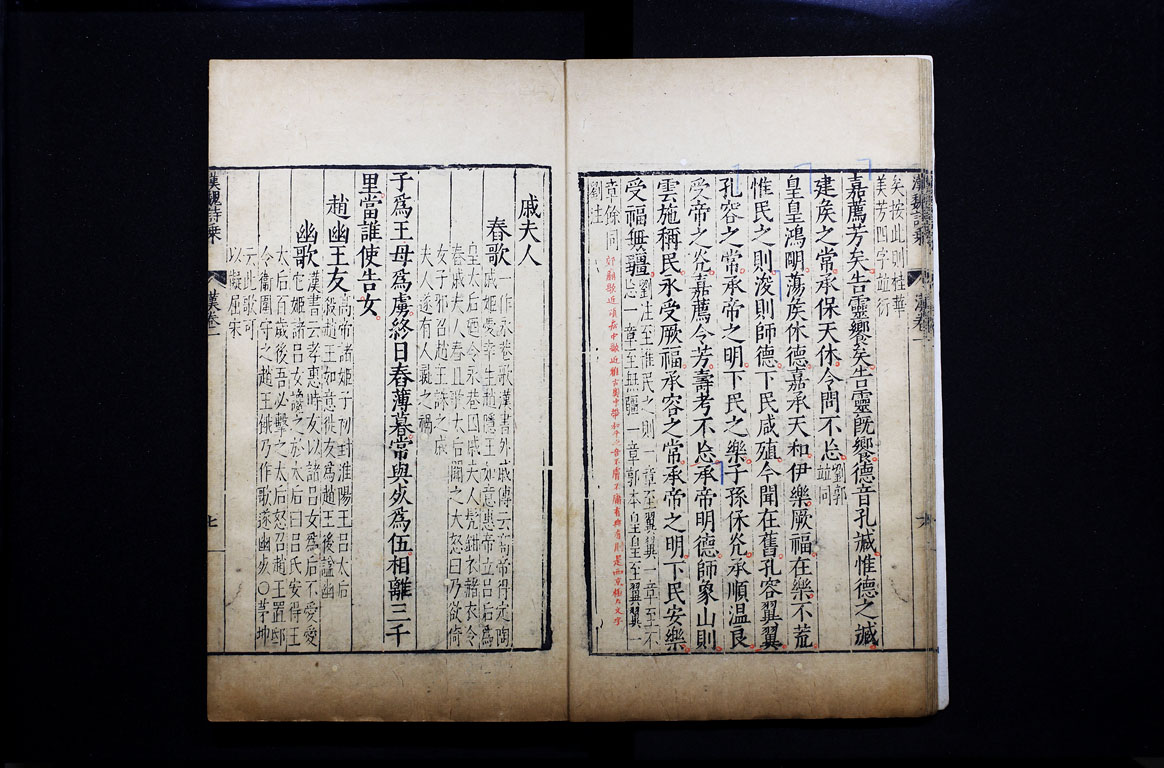 矣按此則桂華
美芳四字竝衍
嘉薦芳矣告靈饗矣告靈旣饗德音孔臧惟德之臧
建矦之常承保天休令問不忘劉郭竝同
皇皇鴻明蕩矦休德嘉承天和伊樂厥福在樂不荒
惟民之則浚則師德下民咸殖令聞在舊孔容翼翼
孔容之常承帝之明下民之樂子孫保光承順温良
受帝之光嘉薦令芳壽考不忘承帝明德師象山則
雲施稱民永受厥福承容之常承帝之明下民安樂
受福無疆劉注至惟民之則一章至翼翼一章至不
忘一章至無疆一章郭本皇皇至翼翼一
章餘同
劉注
郊廟歌近頌房中歌近雅古奧中帶和平之音不膚不庸有典有則是西京極大文字
戚夫人
舂歌一作永巷歌漢書外戚傳云高帝得定陶
戚姬愛幸生趙隱王如意惠帝立呂后爲
皇太后廼令永巷囚戚夫人髡鉗衣赭衣令
舂戚夫人舂且歌太后聞之大怒曰乃欲倚
女子邪召趙王誅之戚
夫人遂有人彘之禍
子爲王母爲虜終日舂薄暮常與死爲伍相離三千
里當誰使告女
趙幽王友高帝諸姬子初封淮陽王呂太后
殺趙王如意徙友爲趙王後諡幽
幽歌漢書云孝惠時友以諸呂女爲后不愛愛
它姬諸呂女讒之於太后曰呂氏安得王
太后百歲後吾必擊之太后怒召趙王置邸
令衛圍守之趙王餓乃作歌遂幽死○茅坤
云此歌可
以擬屈宋
漢魏詩乘
漢卷一
七